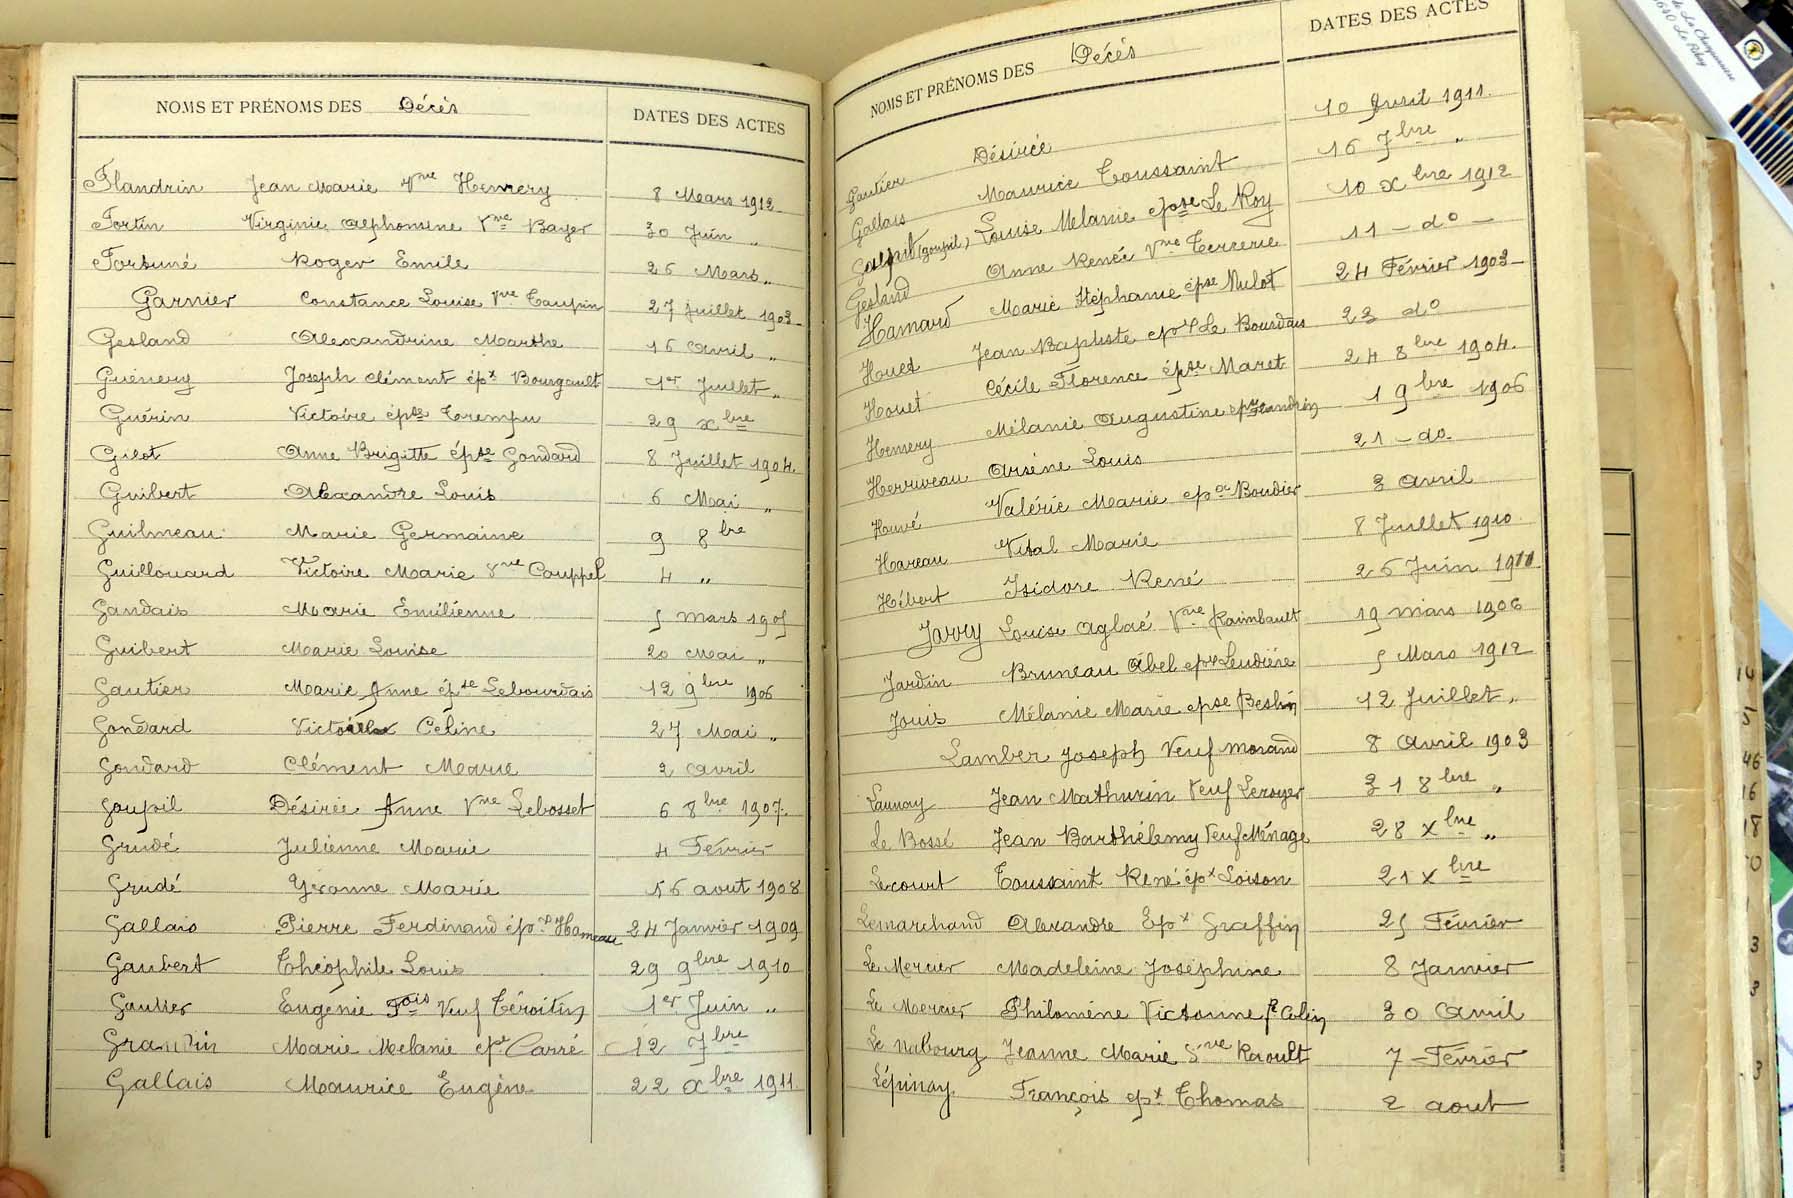 NOMS ET PRÉNOMS DES Décès DATES DES ACTES
Flandrin Jean Marie Vve Hemery 8 Mars 1912
Fortin Virginie Alphonsine Vve Bayer 30 Juin „
Fortuné Roger Emile 26 Mars „
Garnier Constance Louise Vve Taupin 27 juillet 1903
Gesland Alexandrine Marthe 16 avril „
Guénery Joseph Clément épx Bourgault 1er Juillet „
Guérin Victoire épse Trempu 29 xbre
Gilot Anne Brigitte épse Gondard 8 Juillet 1904.
Guibert Alexandre Louis 6 Mai „
Guilmeau Marie Germaine 9 8bre
Guillouard Victoire Marie Vve Couppel 4 „
Gandais Marie Emilienne 5 mars 1905
Guibert Marie Louise 20 Mai „
Gautier Marie Anne épse Lebourdais 12 9bre 1906
Gondard Celine 27 Mai „
Gondard Clément Marie 2 avril
Goupil Désirée Anne Vve Lebosset 6 8bre 1907.
Grudé Julienne Marie 4 Février
Grudé Yvonne Marie 16 aout 1908
Gallais Pierre Ferdinand épx Hameau 24 Janvier 1909
Gaubert Théophile Louis 29 9bre 1910
Gautier Eugénie Fois Veuf 1er Juin „
Grandin Marie Melanie épse Carré 12 7bre
Gallais Maurice Eugène 22 xbre 1911.
NOMS ET PRÉNOMS DES Décès DATES DES ACTES
Gautier Désirée 10 Avril 1911.
Gallais Maurice Toussaint 16 7bre „
(goupil) Louise Mélanie épse Le Roy 10 xbre 1912
Gesland Anne Renée Vve Terrerie 11 - do -
Hamard Marie Stéphanie épse Mulot 24 Février 1903-
Houet Jean Baptiste épx Le Bourdais 23 do
Houet Cécile Florence épse Maret 24 8bre 1904.
Hemery Mélanie Augustine épse Flandrin 1 9bre 1906
Herriveau Arsène Louis 21 - do-
Houvé Valérie Marie épse Boudier 3 avril
Hareau Vital Marie 8 Juillet 1910.
Hébert Isidore René 26 Juin 1911.
Jarry Louise Aglaé Vve Raimbault 19 mars 1906
Jardin Bruneau Abel épx Leudière 5 Mars 1912
Jouis Mélanie Marie épse Beslin 12 Juillet „
Lamber Joseph Veuf Morand 8 Avril 1903
Launay Jean Mathurin Veuf Leroyer 31 8bre „
Le Bossé Jean Barthélemy Veuf Ménage 28 xbre „
Lecourt Toussaint René épx Loison 21 xbre
Lemarchand Alexandre Epx Graffin 25 Février
Le Mercier Madeleine Joséphine 8 Janvier
Le Mercier Philomène Victorine Colin 30 Avril
Le Nabourg Jeanne Marie Vve Raoult 7 Février
Lépinay. François épx Thomas 2 aout